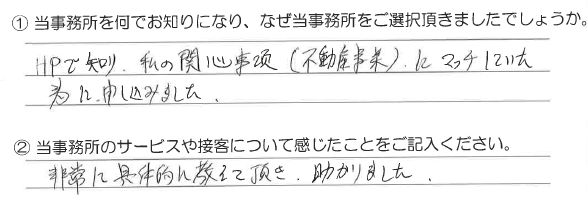 ① 当事務所を何でお知りになり、なぜ当事務所をご選択頂きましたでしょうか。
HPで知り、私の関心事項(不動産事業)にマッチしていた
為に申し込みました。
② 当事務所のサービスや接客について感じたことをご記入ください。
非常に具体的に教えて頂き、助かりました。